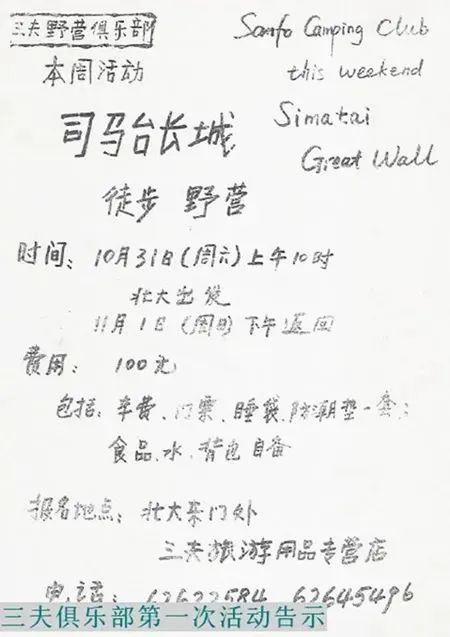 三夫野营俱乐部
Sanfo Camping Club
本周活动
this weekend
司马台长城
Simatai
Great Wall
徒步 野营
时间: 10月31日(周六)上午10时
北大出发
11月1日(周日)下午返回
费用: 100元
包括: 车费、门票、睡袋、防潮垫一套;
食品、水、背包自备
报名地点: 北大东门外
三夫旅游用品专营店
电话: 62645496
三夫俱乐部第一次活动告示